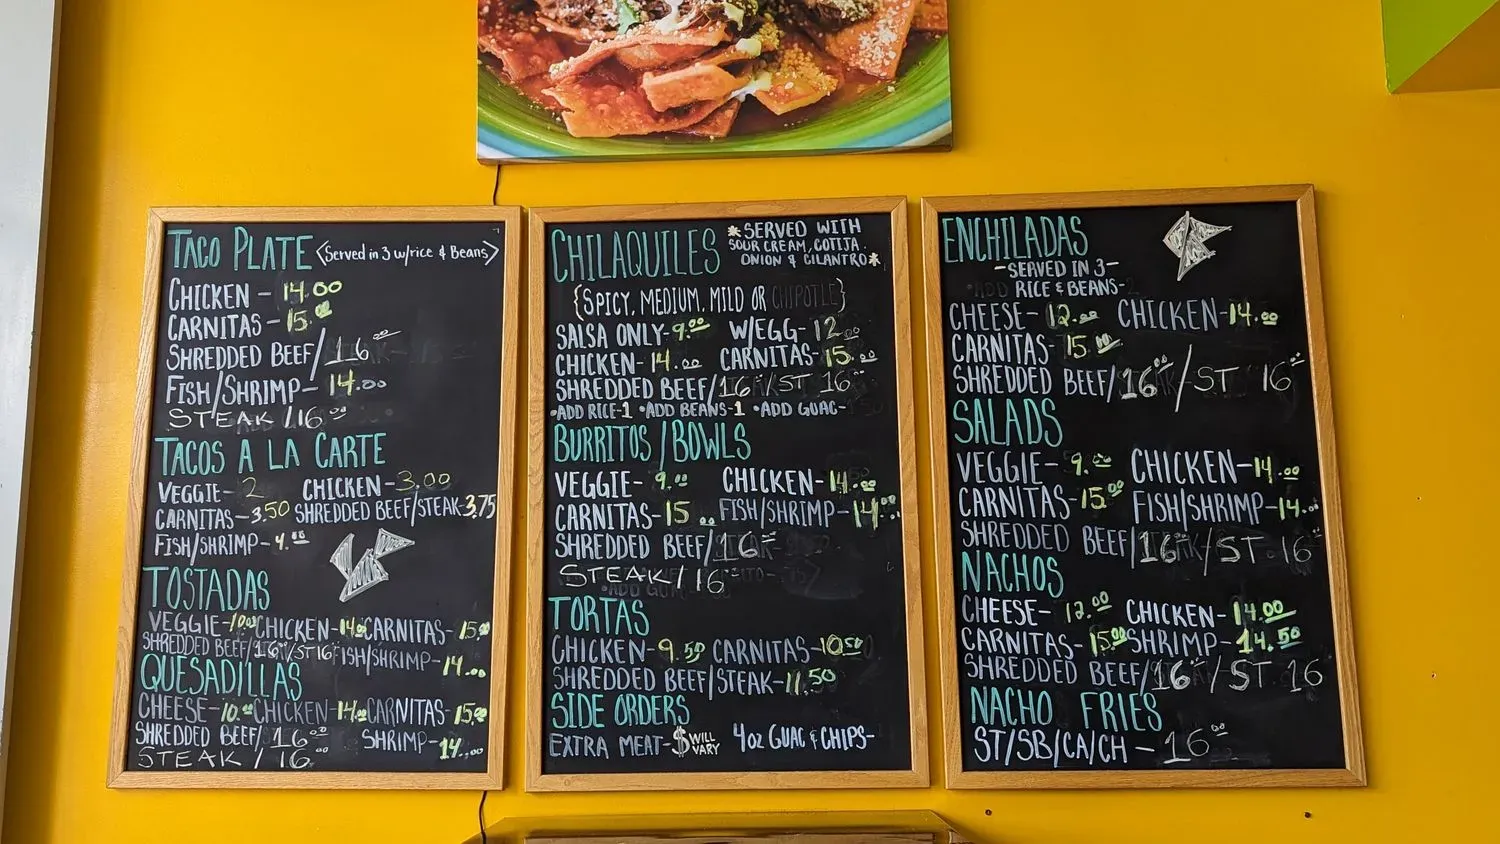 TACO PLATE <Served in 3 w/rice & Beans>
CHICKEN - 14.00
CARNITAS - 15.00
SHREDDED BEEF/ 16.00
FISH/SHRIMP - 14.00
STEAK /16.00
TACOS A LA CARTE
VEGGIE - 2 CHICKEN - 3.00
CARNITAS - 3.50 SHREDDED BEEF/STEAK - 3.75
FISH/SHRIMP - 4.00
TOSTADAS
VEGGIE - 10.00 CHICKEN - 14.00 CARNITAS - 15.00
SHREDDED BEEF/16.00/ST 16.00 FISH/SHRIMP - 14.00
QUESADILLAS
CHEESE - 10.00 CHICKEN - 14.00 CARNITAS - 15.00
SHREDDED BEEF/ 16.00 SHRIMP - 14.00
STEAK / 16.00
CHILAQUILES *SERVED WITH
SOUR CREAM, COTIJA,
ONION & CILANTRO*
{SPICY, MEDIUM, MILD OR CHIPOTLE}
SALSA ONLY - 9.00 W/EGG - 12.00
CHICKEN - 14.00 CARNITAS - 15.00
SHREDDED BEEF/16.00/ST 16.00
•ADD RICE-1 •ADD BEANS-1 •ADD GUAC-
BURRITOS/BOWLS
VEGGIE - 9.00 CHICKEN - 14.00
CARNITAS - 15.00 FISH/SHRIMP - 14.00
SHREDDED BEEF/16.00
STEAK/16.00
TORTAS
CHICKEN - 9.50 CARNITAS - 10.50
SHREDDED BEEF/STEAK - 11.50
SIDE ORDERS
EXTRA MEAT - $ WILL VARY 4oz GUAC & CHIPS-
ENCHILADAS
-SERVED IN 3-
RICE & BEANS-
CHEESE - 12.00 CHICKEN - 14.00
CARNITAS 15.00
SHREDDED BEEF/16.00/ST 16.00
SALADS
VEGGIE - 9.00 CHICKEN - 14.00
CARNITAS - 15.00 FISH/SHRIMP - 14.00
SHREDDED BEEF/16.00/ST 16.00
NACHOS
CHEESE - 12.00 CHICKEN - 14.00
CARNITAS - 15.00 SHRIMP - 14.50
SHREDDED BEEF/16.00/ST. 16
NACHO FRIES
ST/SB/CA/CH - 16.00